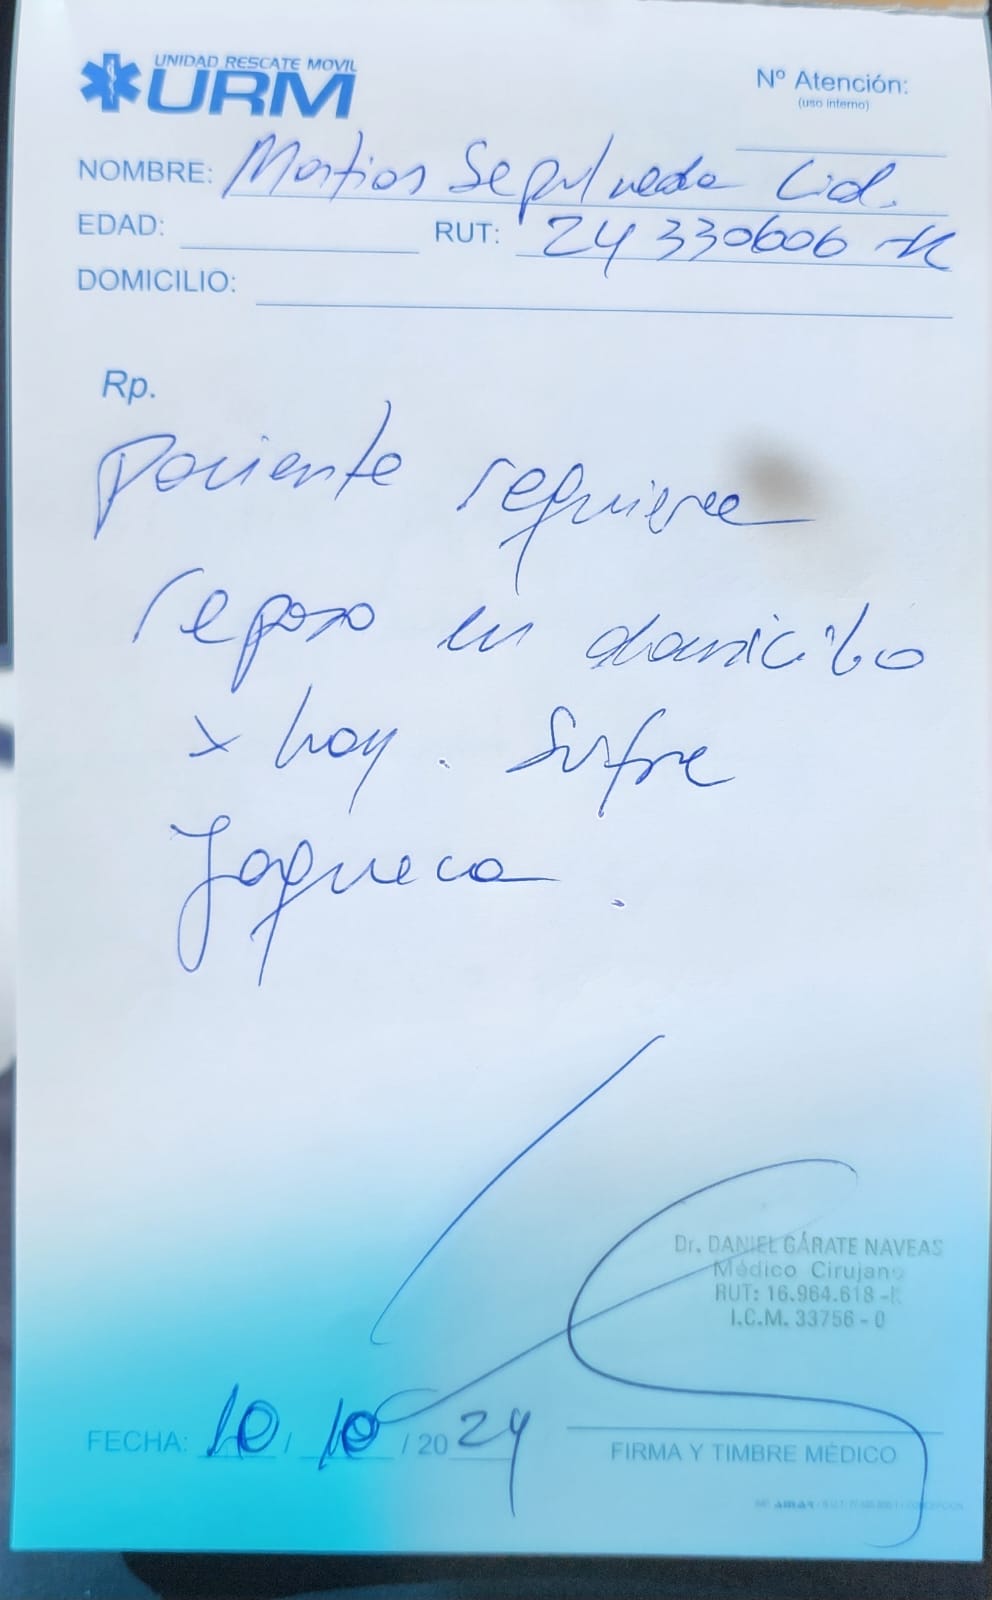 UNIDAD RESCATE MOVIL
URM
Nº Atención:
(uso interno)
NOMBRE: Matias Sepulveda Cid.
EDAD: RUT: 24 330606 -K
DOMICILIO:
Rp.
paciente requiere
reposo en domicilio
x hoy. Sufre
Jaqueca.
Dr. DANIEL GÁRATE NAVEAS
Médico Cirujano
RUT: 16.964.618 -K
I.C.M. 33756 - 0
FECHA: 10 / 10 / 20 24
FIRMA Y TIMBRE MÉDICO